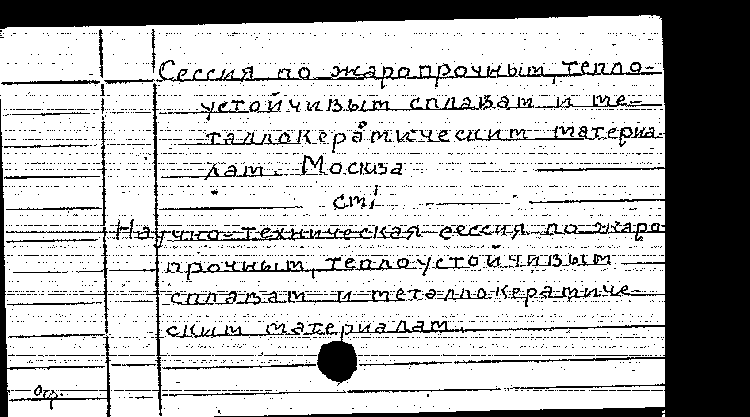 Сессия по жаропрочным, тепло-
устойчивым сплавам и ме-
таллокерамическим материа-
лам. Москва
см
Научно-техническая сессия по жаро-
прочным, теплоустойчивым
сплавам и металлокерамиче-
ским материалам.